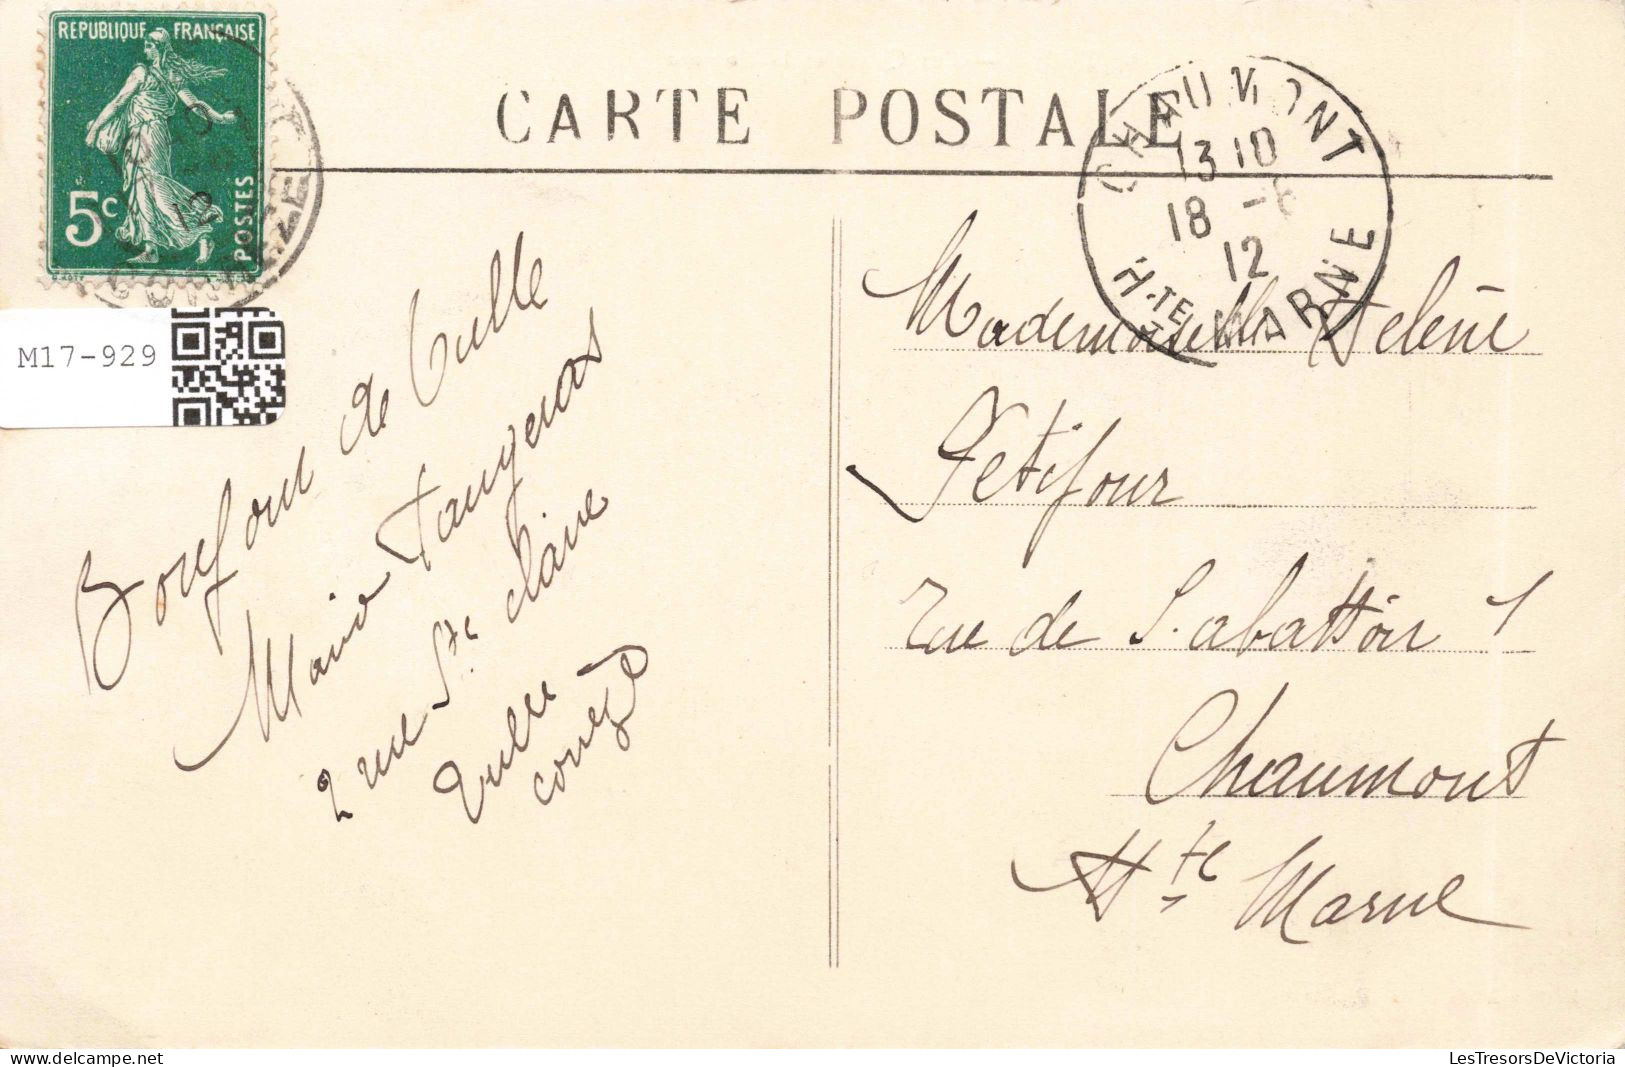 REPUBLIQUE FRANÇAISE
5c
POSTES
CARTE POSTALE
CHAUMONT
13 10
18 -6
12
Hte MARNE
CORREZE
M17-929
Bonjour de Tulle
Marie
2 rue Ste claire
Tulle
corrèze
Mademoiselle Helène
Petifour
rue de L'abattoir 1
Chaumont
Hte Marne
LesTresorsDeVictoria